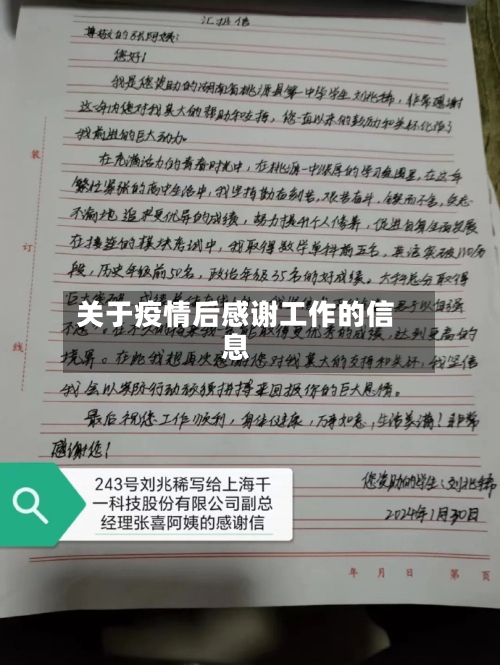 汇报信
尊敬的张阿姨:
您好!
我是您资助的湖南省桃源县第一中学学生刘兆稀,非常感谢
这一年内您对我莫大的帮助和支持,您一直以来的鼓励和关怀化作了
我前进的巨大动力。
在充满活力的青春时光中,在桃源一中浓厚的学习氛围里,在这年
繁忙紧张的高中生活中,我坚持勤奋刻苦,艰苦奋斗,锲而不舍,矢志
不渝地追求更优异的成绩,努力提升个人修养,促进自身全面发展
在接连的模块考试中,我取得数学单科前五名,英语突破110分
段,历史年级前50名,政治年级35名的好成绩。大科总分取得
关于疫情后感谢工作的信
息
装
订
线
境界。在此我想再次感谢您对我莫大的支持和关怀,我坚信
我会以实际行动顽强拼搏来回报你的巨大恩情。
最后祝您工作顺利,身体健康,万事如意,生活美满!非常
感谢您!
您资助的学生:刘兆稀
2024年1月30日
243号刘兆稀写给上海干
一科技股份有限公司副总
经理张喜阿姨的感谢信
年 月 日 第 页